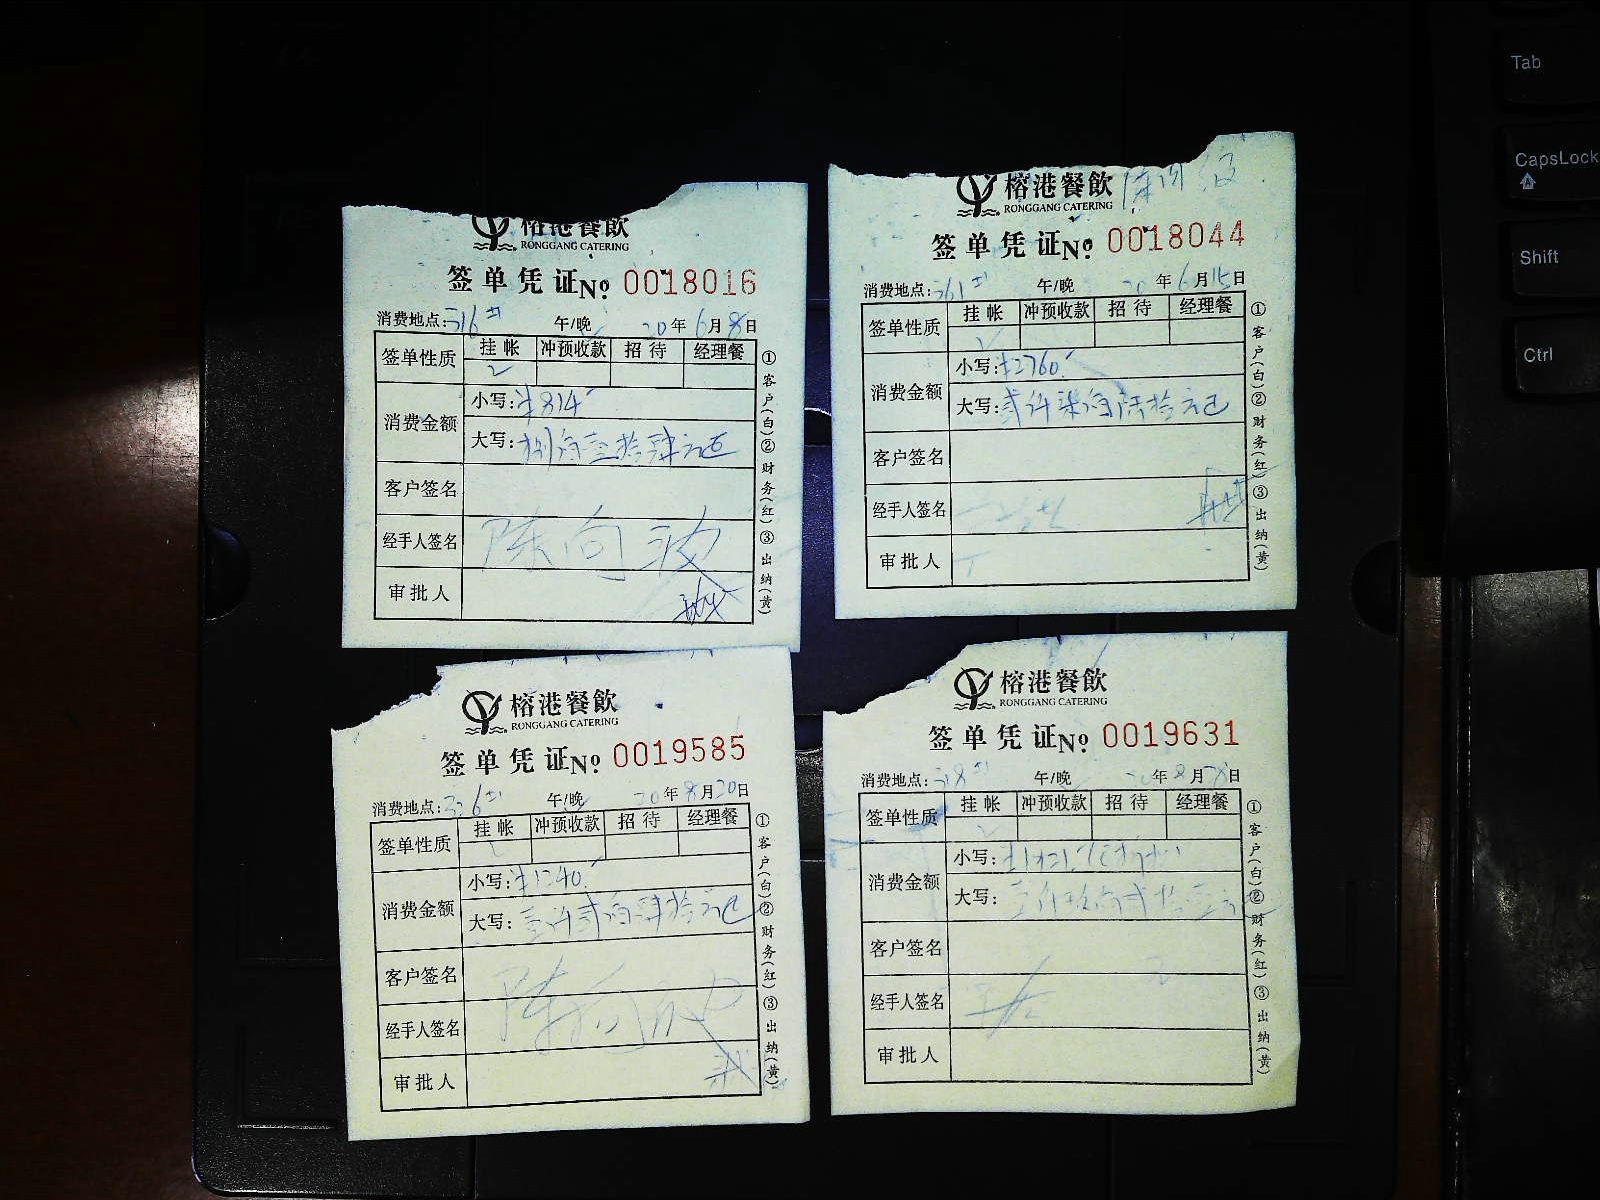 榕港餐飲
RONGGANG CATERING
签单凭证№ 0018016
消费地点:316 午/晚 20年6月8日
签单性质 挂帐 冲预收款 招待 经理餐
消费金额 小写:¥814
大写:捌佰壹拾肆元正
客户签名
经手人签名 陈向波
审批人
①客户(白)②财务(红)③出纳(黄)
榕港餐飲
RONGGANG CATERING
签单凭证№ 0018044
消费地点:361 午/晚 20年6月15日
签单性质 挂帐 冲预收款 招待 经理餐
消费金额 小写:¥2760
大写:贰仟柒佰陆拾元正
客户签名
经手人签名
审批人
①客户(白)②财务(红)③出纳(黄)
榕港餐飲
RONGGANG CATERING
签单凭证№ 0019585
消费地点:336 午/晚 20年8月20日
签单性质 挂帐 冲预收款 招待 经理餐
消费金额 小写:¥1240
大写:壹仟贰佰肆拾元正
客户签名
经手人签名 陈向波
审批人
①客户(白)②财务(红)③出纳(黄)
榕港餐飲
RONGGANG CATERING
签单凭证№ 0019631
消费地点:318 午/晚 20年8月28日
签单性质 挂帐 冲预收款 招待 经理餐
消费金额 小写:
大写:
客户签名
经手人签名
审批人
①客户(白)②财务(红)③出纳(黄)
Tab
CapsLock
Shift
Ctrl